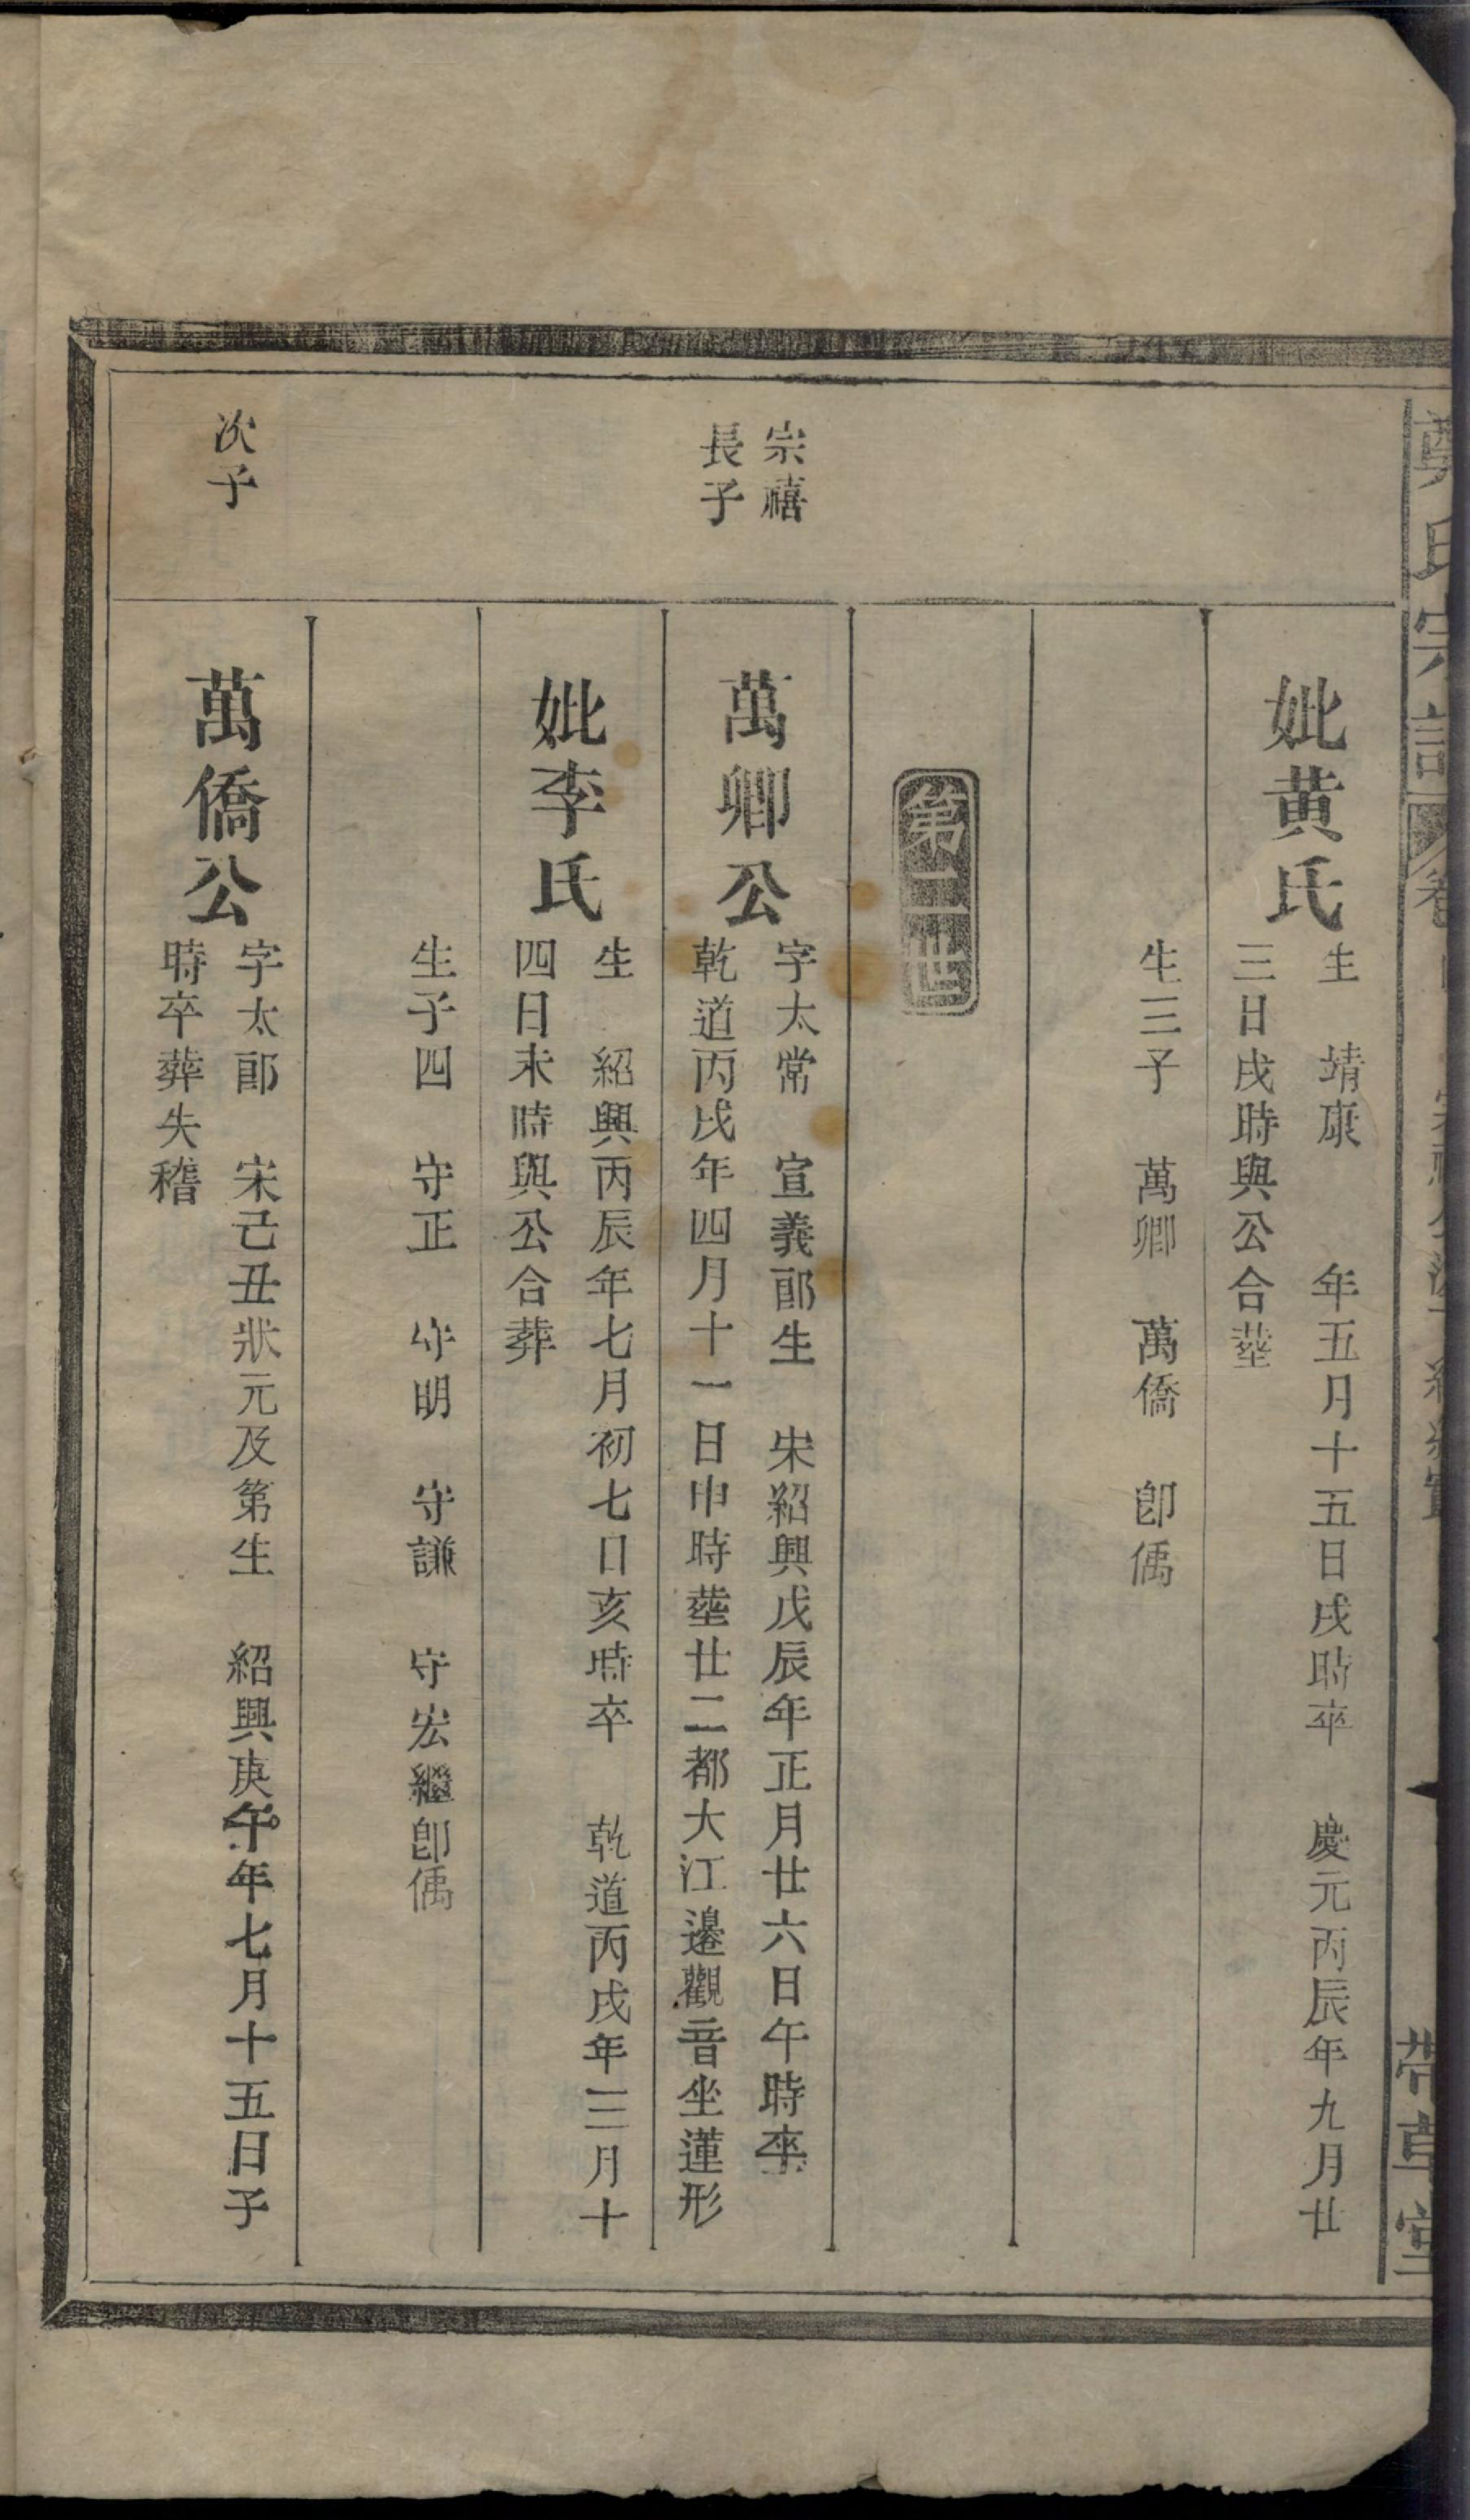 鄭氏宗譜
帶草堂
妣黄氏
生　靖康　　年五月十五日戌時卒　慶元丙辰年九月廿
三日戌時與公合塟
生三子　萬卿　萬僑　卽偊
第二世
宗禧
長子
萬卿公
字太常　宣義郎生　宋紹興戊辰年正月廿六日午時卒
乾道丙戌年四月十一日申時塟廿二都大江邊觀音坐蓮形
妣李氏
生　紹興丙辰年七月初七日亥時卒　乾道丙戌年三月十
四日未時與公合葬
生子四　守正　守明　守謙　守宏繼卽偊
次子
萬僑公
字太郎　宋己丑狀元及第生　紹興庚午年七月十五日子
時卒葬失稽